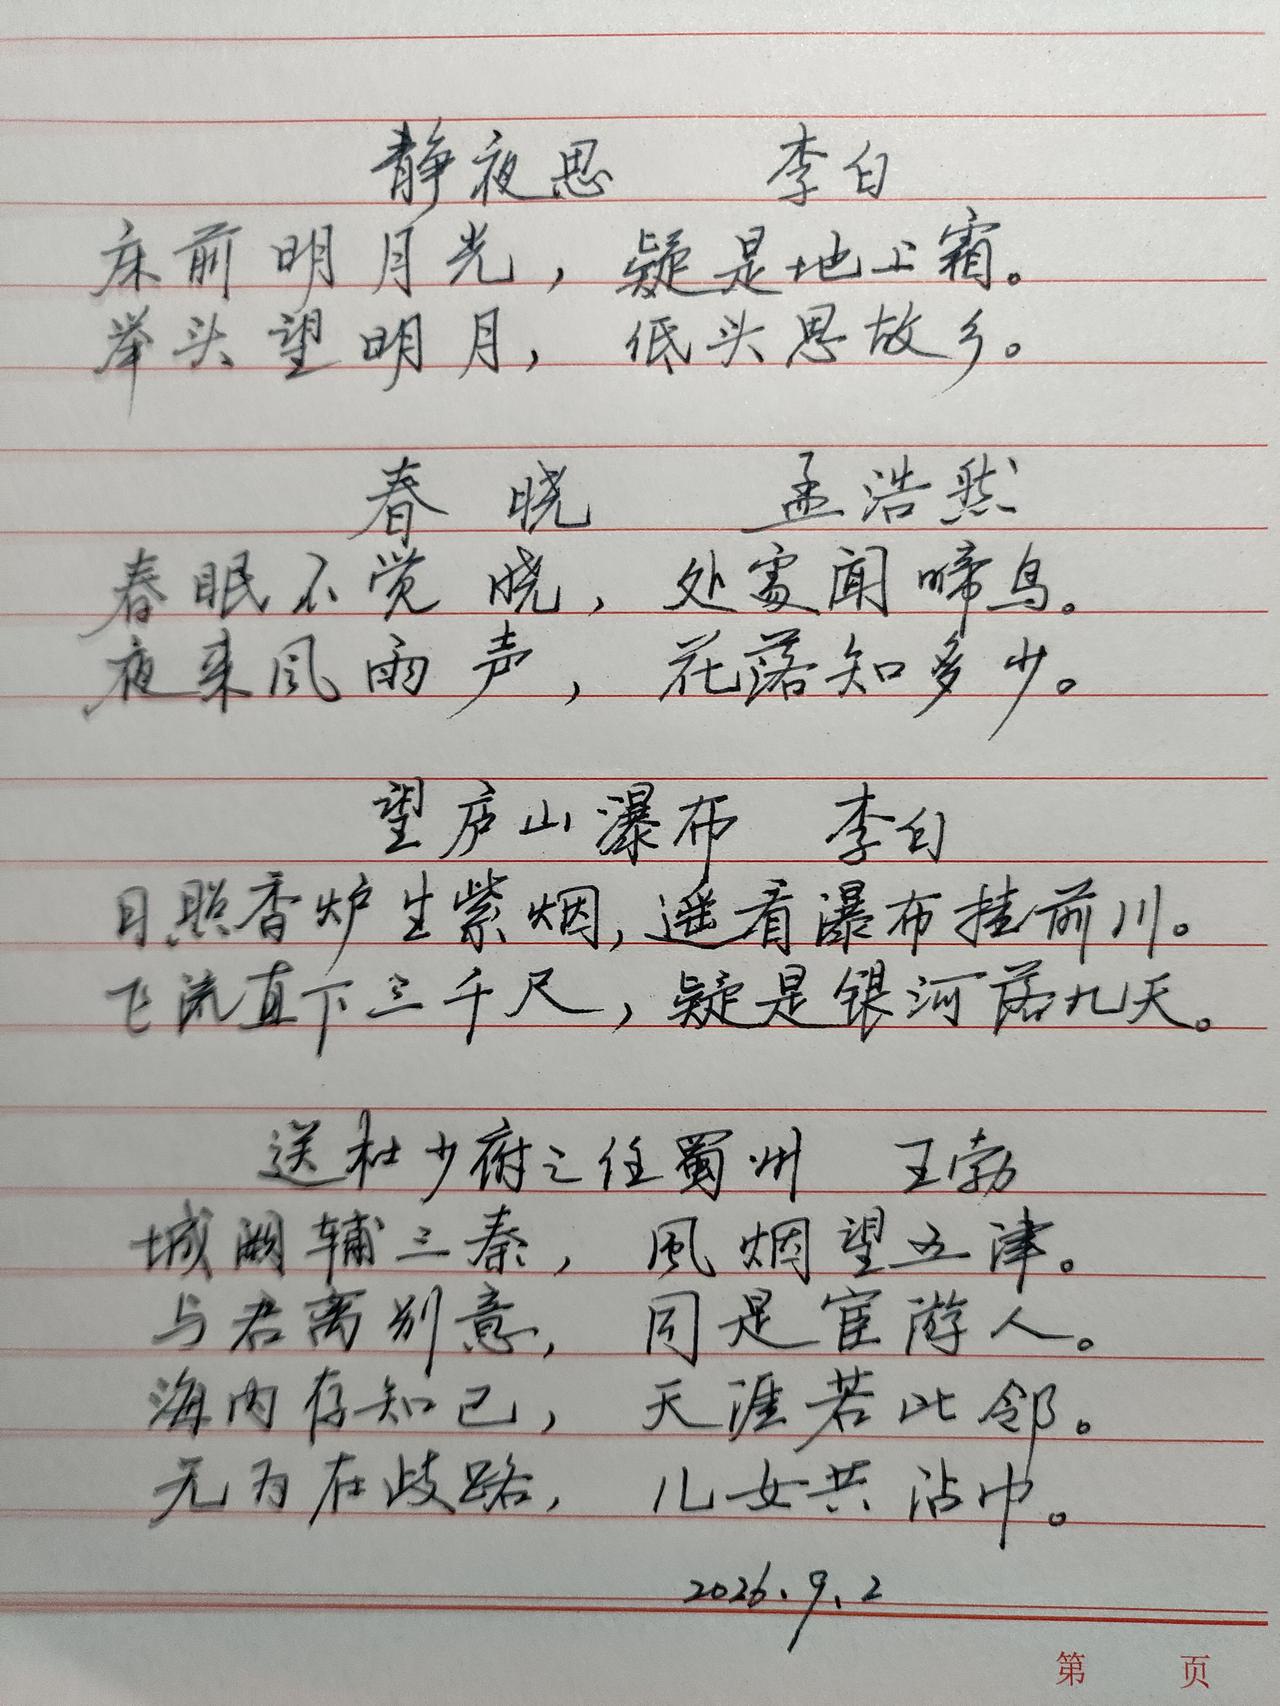 静夜思 李白
床前明月光，疑是地上霜。
举头望明月，低头思故乡。
春晓 孟浩然
春眠不觉晓，处處闻啼鸟。
夜来风雨声，花落知多少。
望庐山瀑布 李白
日照香炉生紫烟，遥看瀑布挂前川。
飞流直下三千尺，疑是银河落九天。
送杜少府之任蜀州 王勃
城阙辅三秦，風烟望五津。
与君离别意，同是宦游人。
海内存知己，天涯若比邻。
无为在歧路，儿女共沾巾。
2026.9.2
第 页